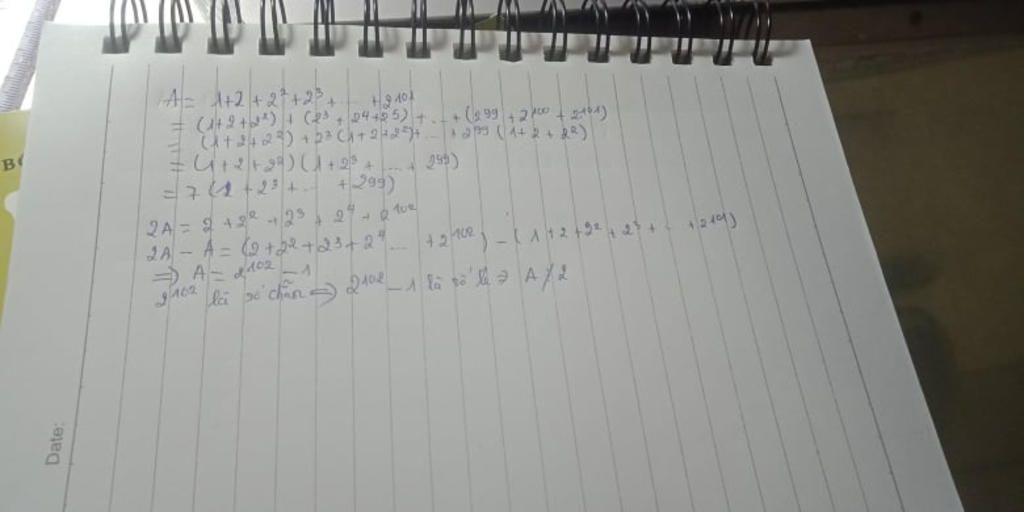 A = 1+2+2²+2³+ ... +2¹⁰¹
= (1+2+2²) + (2³+2⁴+2⁵) + ... + (2⁹⁹+2¹⁰⁰+2¹⁰¹)
= (1+2+2²) + 2³(1+2+2²)+ ... + 2⁹⁹(1+2+2²)
= (1+2+2²)(1+2³+ ... +2⁹⁹)
= 7(1+2³+ ... +2⁹⁹)
2A = 2+2²+2³+2⁴+2¹⁰²
2A - A = (2+2²+2³+2⁴ ... +2¹⁰²) - (1+2+2²+2³+ ... +2¹⁰¹)
=> A = 2¹⁰² - 1
2¹⁰² là số chẵn => 2¹⁰² - 1 là số lẻ => A ⋮̸ 2
Date: